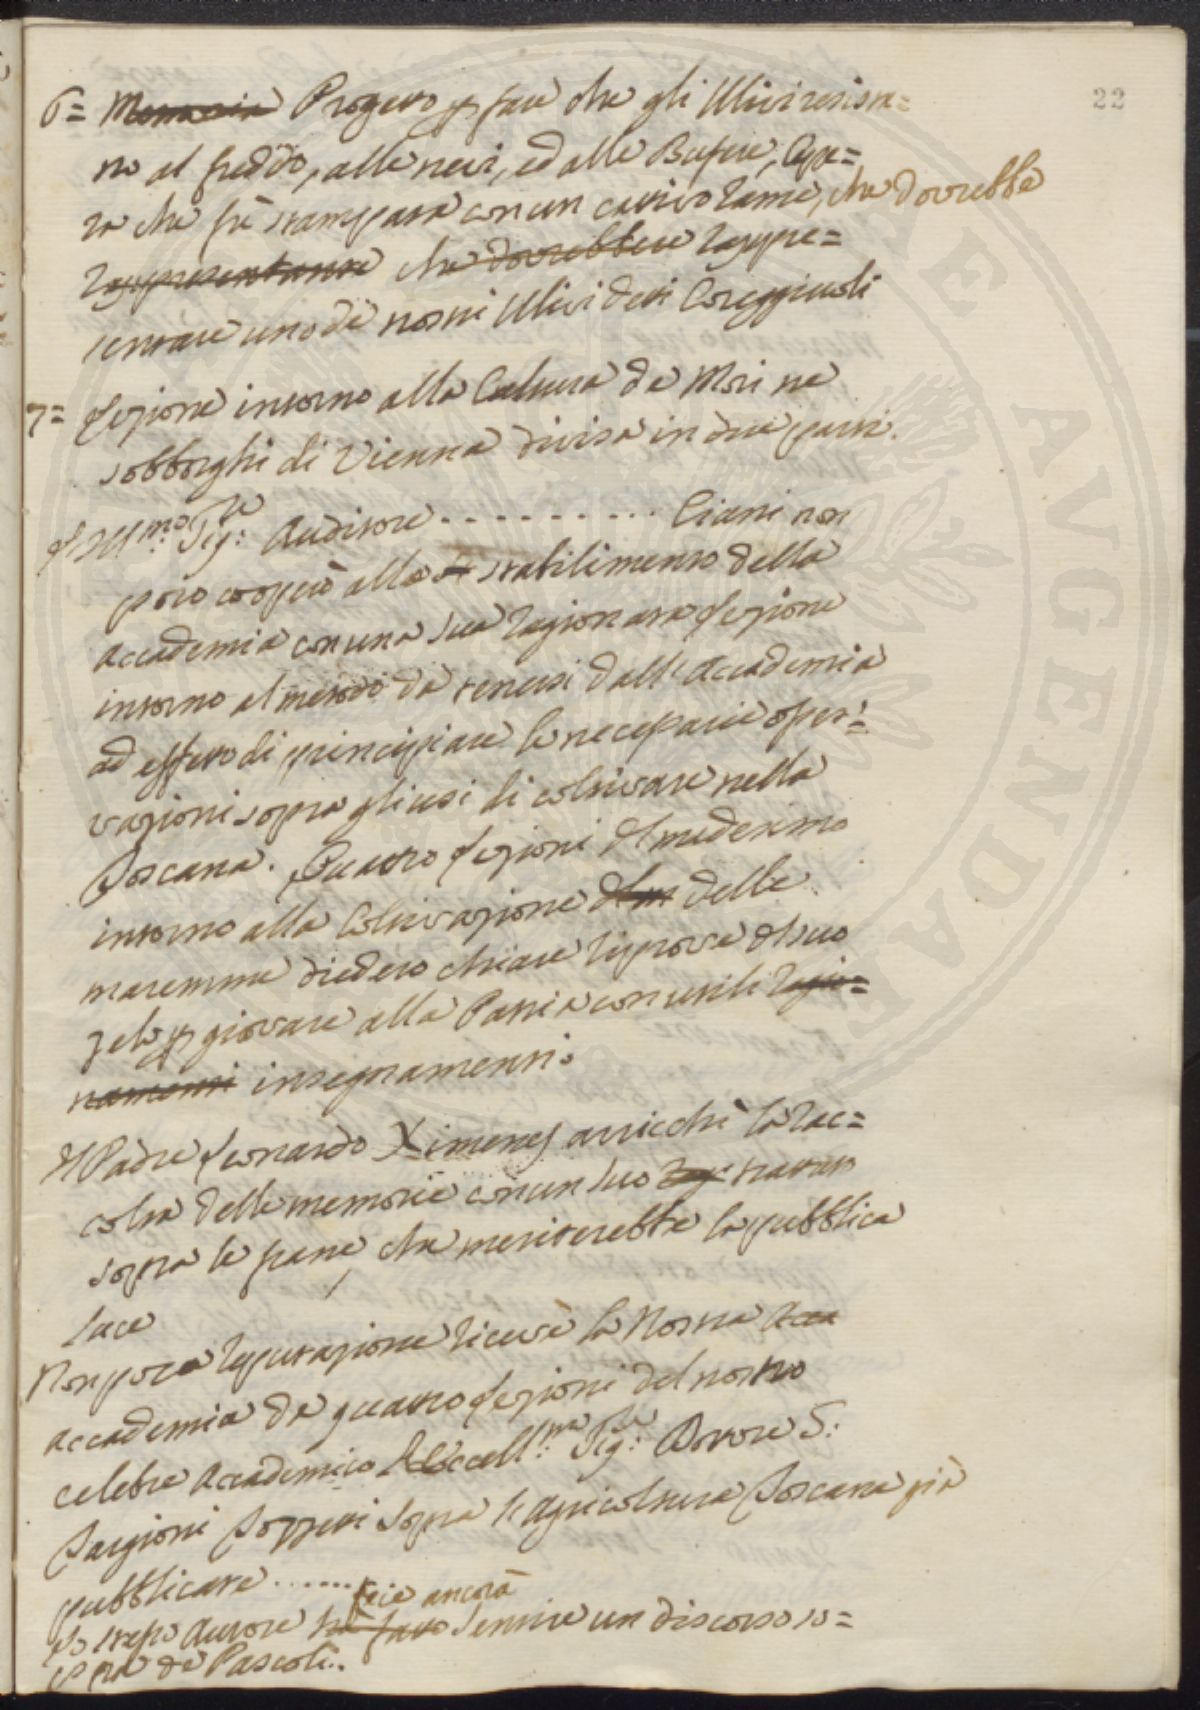 22
6= Memoria Progetto p fare che gli Ulivi resista=
no al freddo, alle nevi, ed alle Bufere, Ope=
ra che fù stampata con un cattivo rame, che dovrebbe
rappresentante che dovrebbere rappre=
sentare uno de nostri Ulivi detti Coreggiuoli
7= Lezione intorno alla Cultura de Mori ne
sobborghi di Vienna divisa in due parti.
L'Ill.mo Sig:re Auditore - - - - - - - - - - Ciani non
poco cooperò allo st stabilimento della
Accademia con una sua ragionata Lezione
intorno al metodo da tenersi dall'Accademia
ad effetto di principiare le necessarie osser=
vazioni sopra gli usi di coltivare nella
Toscana. Quattro Lezioni del medesimo
intorno alla Coltivazione delle
maremme diedero chiare riprove del suo
zelo p giovare alla Patria con utili ragio=
namenti insegnamenti.
Il Padre Leonardo Ximenes arricchì la rac=
colta delle memorie con un suo rag trattato
sopra le frane, che meriterebbe la pubblica
luce
Non poca reputazione ricevè la Nostra Acca
accademia da quattro Lezioni del nostro
celebre Accademico L'Eccell.mo Sig:re Dottore G:
Targioni Tozzetti sopra l'Agricoltura Toscana già
pubblicate . . . . . .
fece ancora
Lo stesso Autore ha fatto sentire un discorso so=
pra de Pascoli.
AE AVGENDAE